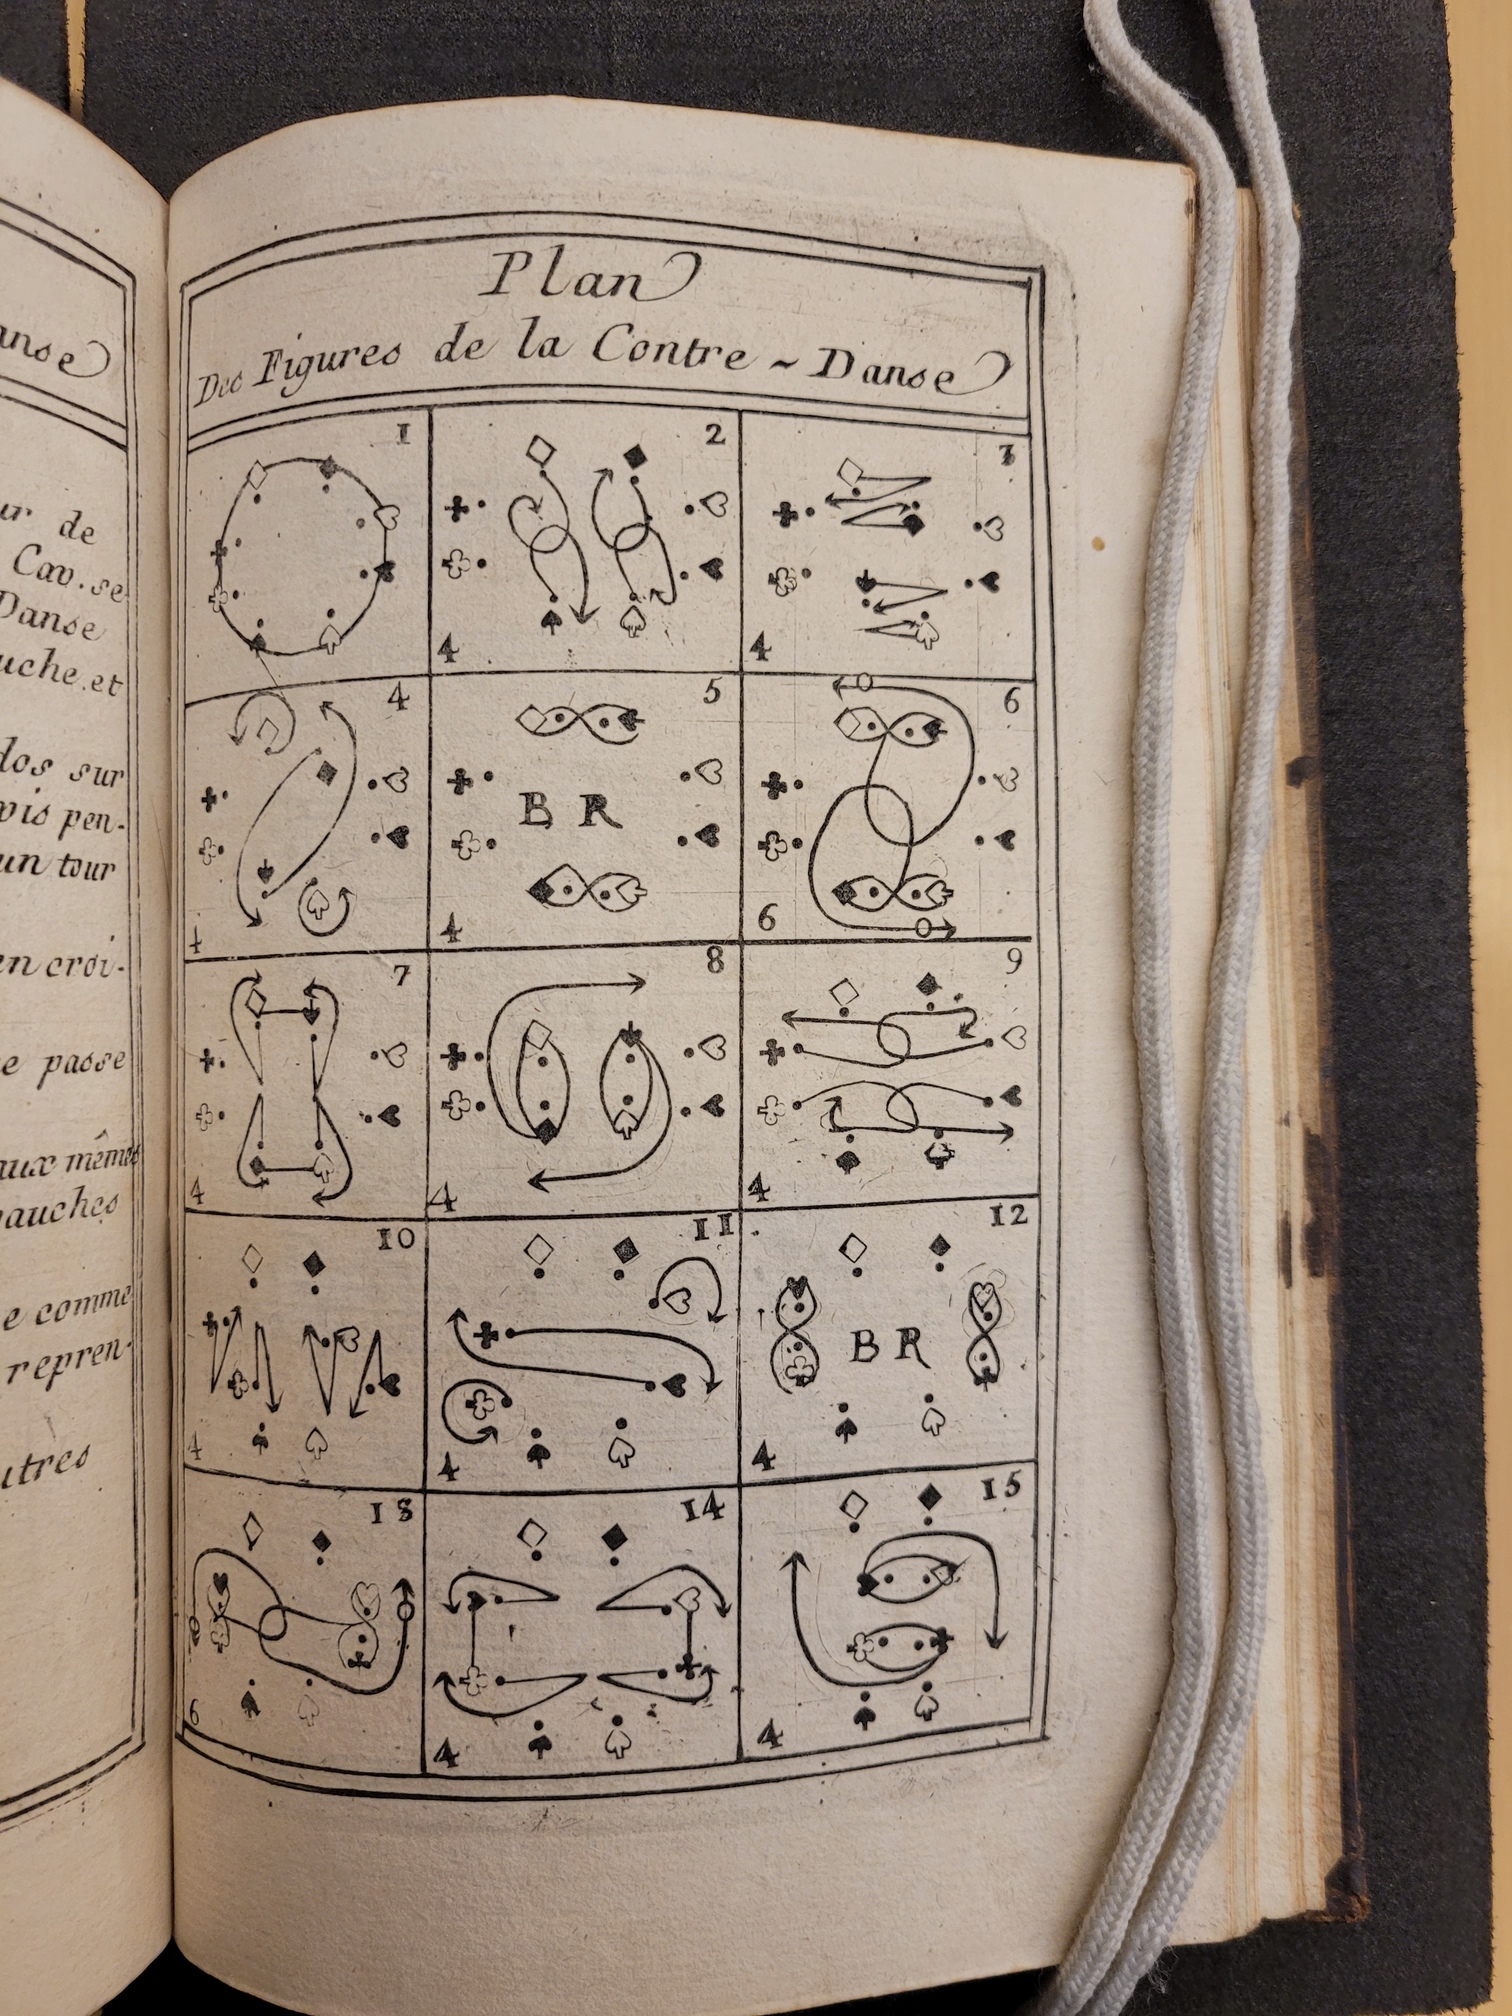 Plan
Des Figures de la Contre ~ Danse
1
2
4
3
4
4
5
B R
4
6
6
7
4
8
4
9
4
10
4
11
4
12
B R
4
13
6
14
4
15
4
de
Cav. se
Danse
et
dos sur
pen-
un tour
en croi-
e passe
aux mêmes
gauches
e comme
repren-